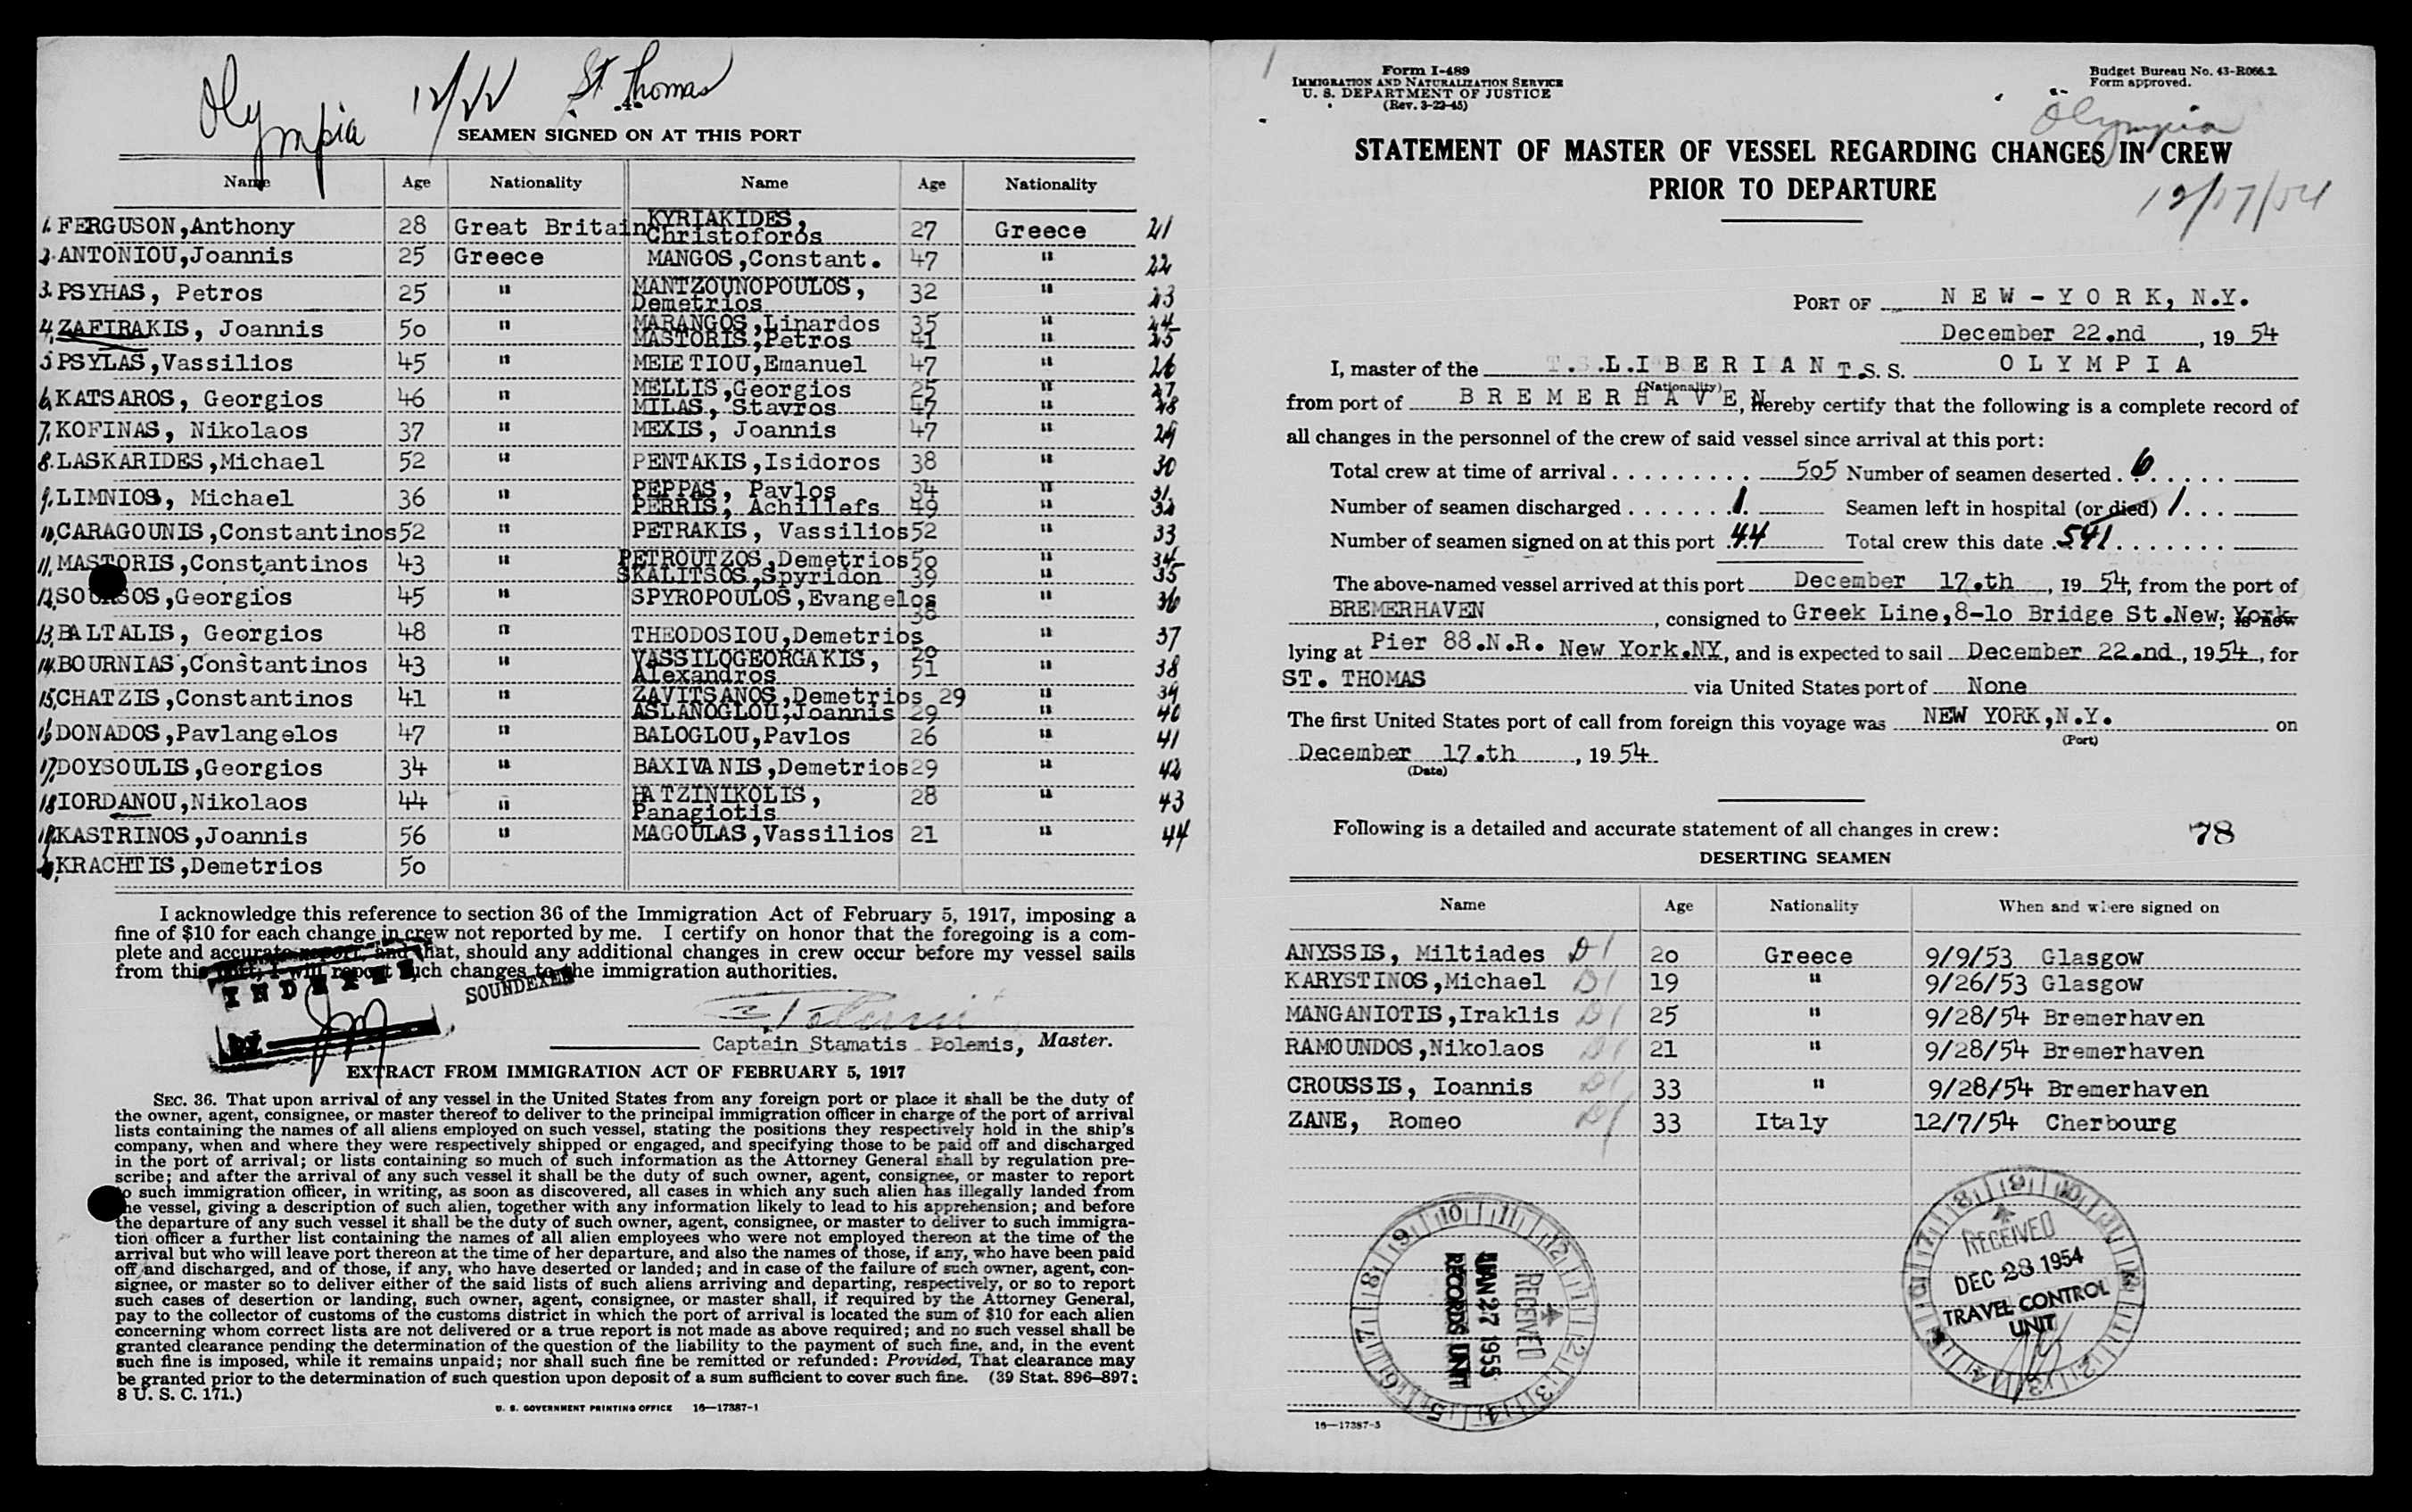 Olympia 12/22 St Thomas
-4-
SEAMEN SIGNED ON AT THIS PORT
Name Age Nationality Name Age Nationality
1. FERGUSON,Anthony 28 Great Britain KYRIAKIDES, Christoforos 27 Greece 21
2. ANTONIOU,Joannis 25 Greece MANGOS,Constant. 47 " 22
3. PSYHAS, Petros 25 " MANTZOUNOPOULOS, Demetrios 32 " 23
4. ZAFIRAKIS, Joannis 50 " MARANGOS,Linardos 35 " 24
MASTORIS,Petros 41 " 25
5 PSYLAS,Vassilios 45 " MELETIOU,Emanuel 47 " 26
6. KATSAROS, Georgios 46 " MELLIS,Georgios 25 " 27
MILAS, Stavros 47 " 28
7. KOFINAS, Nikolaos 37 " MEXIS, Joannis 47 " 29
8. LASKARIDES,Michael 52 " PENTAKIS,Isidoros 38 " 30
9. LIMNIOS, Michael 36 " PEPPAS, Pavlos 34 " 31
PERRIS, Achillefs 49 " 32
10. CARAGOUNIS,Constantinos 52 " PETRAKIS, Vassilios 52 " 33
11. MASTORIS,Constantinos 43 " PETROUTZOS,Demetrios 50 " 34
SKALITSOS,Spyridon 39 " 35
12. SOURSOS,Georgios 45 " SPYROPOULOS,Evangelos 38 " 36
13. BALTALIS, Georgios 48 " THEODOSIOU,Demetrios 50 " 37
14. BOURNIAS,Constantinos 43 " VASSILOGEORGAKIS, Alexandros 51 " 38
15. CHATZIS,Constantinos 41 " ZAVITSANOS,Demetrios 29 " 39
ASLANOGLOU,Joannis 29 " 40
16 DONADOS,Pavlangelos 47 " BALOGLOU,Pavlos 26 " 41
17. DOYSOULIS,Georgios 34 " BAXIVANIS,Demetrios 29 " 42
18 IORDANOU,Nikolaos 44 " HATZINIKOLIS, Panagiotis 28 " 43
19. KASTRINOS,Joannis 56 " MAGOULAS,Vassilios 21 " 44
20. KRACHTIS,Demetrios 50
I acknowledge this reference to section 36 of the Immigration Act of February 5, 1917, imposing a
fine of $10 for each change in crew not reported by me. I certify on honor that the foregoing is a com-
plete and accurate report, and that, should any additional changes in crew occur before my vessel sails
from this port, I will report such changes to the immigration authorities.
INDEXED
BY
SOUNDEXED
Captain Stamatis Polemis, Master.
EXTRACT FROM IMMIGRATION ACT OF FEBRUARY 5, 1917
SEC. 36. That upon arrival of any vessel in the United States from any foreign port or place it shall be the duty of
the owner, agent, consignee, or master thereof to deliver to the principal immigration officer in charge of the port of arrival
lists containing the names of all aliens employed on such vessel, stating the positions they respectively hold in the ship's
company, when and where they were respectively shipped or engaged, and specifying those to be paid off and discharged
in the port of arrival; or lists containing so much of such information as the Attorney General shall by regulation pre-
scribe; and after the arrival of any such vessel it shall be the duty of such owner, agent, consignee, or master to report
to such immigration officer, in writing, as soon as discovered, all cases in which any such alien has illegally landed from
the vessel, giving a description of such alien, together with any information likely to lead to his apprehension; and before
the departure of any such vessel it shall be the duty of such owner, agent, consignee, or master to deliver to such immigra-
tion officer a further list containing the names of all alien employees who were not employed thereon at the time of the
arrival but who will leave port thereon at the time of her departure, and also the names of those, if any, who have been paid
off and discharged, and of those, if any, who have deserted or landed; and in case of the failure of such owner, agent, con-
signee, or master so to deliver either of the said lists of such aliens arriving and departing, respectively, or so to report
such cases of desertion or landing, such owner, agent, consignee, or master shall, if required by the Attorney General,
pay to the collector of customs of the customs district in which the port of arrival is located the sum of $10 for each alien
concerning whom correct lists are not delivered or a true report is not made as above required; and no such vessel shall be
granted clearance pending the determination of the question of the liability to the payment of such fine, and, in the event
such fine is imposed, while it remains unpaid; nor shall such fine be remitted or refunded: Provided, That clearance may
be granted prior to the determination of such question upon deposit of a sum sufficient to cover such fine. (39 Stat. 896–897;
8 U. S. C. 171.)
U. S. GOVERNMENT PRINTING OFFICE 16—17387-1
Form I-489
IMMIGRATION AND NATURALIZATION SERVICE
U. S. DEPARTMENT OF JUSTICE
(Rev. 3-22-45)
Budget Bureau No. 43-R066.2.
Form approved.
Olympia
12/17/54
STATEMENT OF MASTER OF VESSEL REGARDING CHANGES IN CREW
PRIOR TO DEPARTURE
PORT OF NEW-YORK, N.Y.
December 22.nd, 19 54
I, master of the LIBERIAN T.S.S. OLYMPIA
(Nationality)
from port of BREMERHAVEN, hereby certify that the following is a complete record of
all changes in the personnel of the crew of said vessel since arrival at this port:
Total crew at time of arrival 505 Number of seamen deserted 6
Number of seamen discharged 1. Seamen left in hospital (or died) 1
Number of seamen signed on at this port 44 Total crew this date 541
The above-named vessel arrived at this port December 17.th, 19 54, from the port of
BREMERHAVEN, consigned to Greek Line,8-10 Bridge St.New; York is now
lying at Pier 88.N.R. New York.NY, and is expected to sail December 22.nd, 1954, for
ST. THOMAS via United States port of None
The first United States port of call from foreign this voyage was NEW YORK,N.Y. on
(Port)
December 17.th, 19 54.
(Date)
Following is a detailed and accurate statement of all changes in crew: 78
DESERTING SEAMEN
Name Age Nationality When and where signed on
ANYSSIS, Miltiades D1 20 Greece 9/9/53 Glasgow
KARYSTINOS,Michael D1 19 " 9/26/53 Glasgow
MANGANIOTIS,Iraklis D1 25 " 9/28/54 Bremerhaven
RAMOUNDOS,Nikolaos D1 21 " 9/28/54 Bremerhaven
CROUSSIS, Ioannis D1 33 " 9/28/54 Bremerhaven
ZANE, Romeo D1 33 Italy 12/7/54 Cherbourg
RECEIVED
JAN 27 1955
RECORDS UNIT
RECEIVED
DEC 28 1954
TRAVEL CONTROL
UNIT
16—17387-3